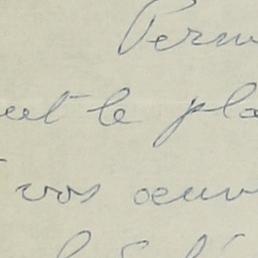 Perm
eut le pla
vos œuv